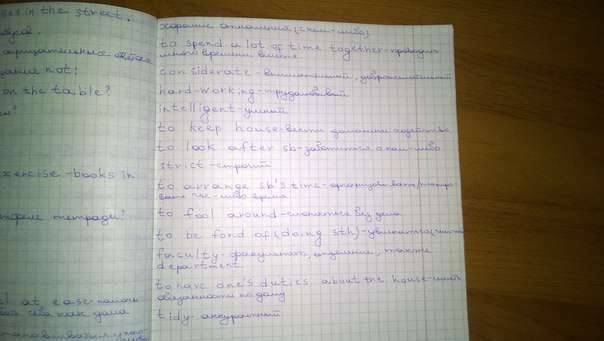 ses in the street.
on the table?
exercise-books in
тетради?
at ease-
себя как дома
хорошие отношения (с кем-либо)
to spend a lot of time together-проводить
много времени вместе
considerate-внимательный, доброжелательный
hard-working-трудолюбивый
intelligent-умный
to keep house-вести домашнее хозяйство
to look after sb-заботиться о ком-либо
strict-строгий
to arrange sb's time-организовывать/планиро-
вать чьё-либо время
to fool around-слоняться без дела
to be fond of (doing sth)-увлекаться
faculty-факультет, отделение, также
department
to have one's duties about the house-иметь
обязанности по дому
tidy-аккуратный